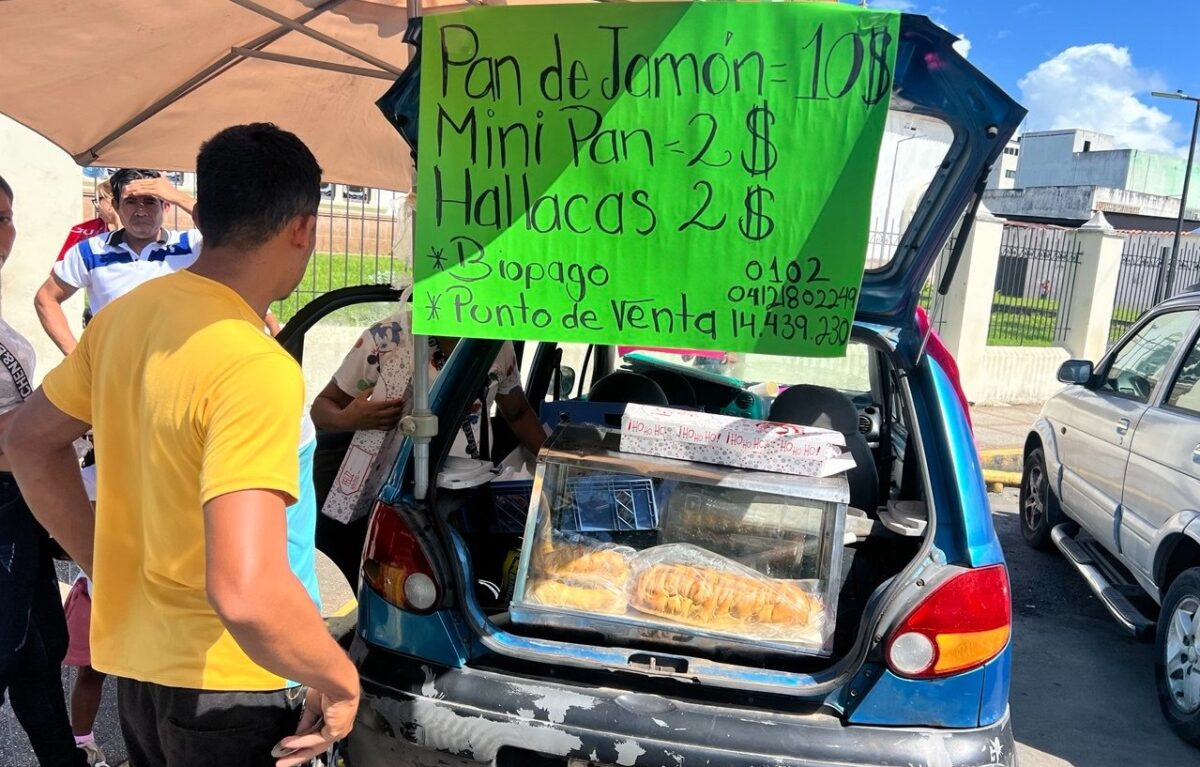 Pan de Jamón = 10$
Mini Pan = 2 $
Hallacas 2 $
* Biopago
* Punto de Venta
0102
04121802249
14.439.230
¡HO HO HO!
¡HO HO HO!
¡HO HO HO!